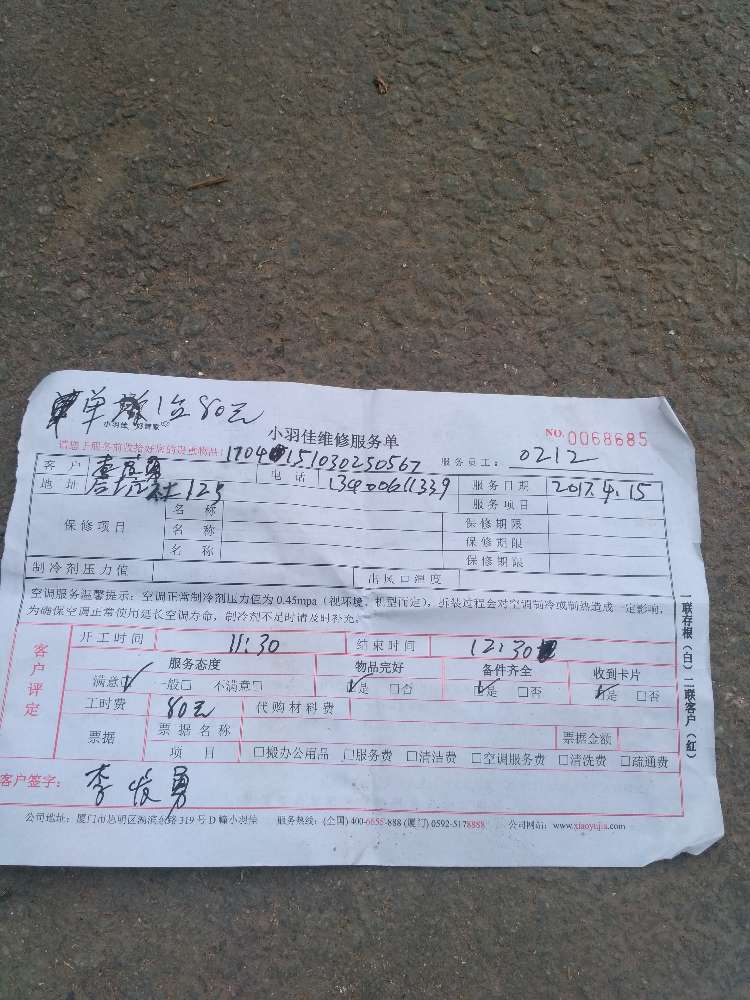 单 1位80元
小羽佳 好管家
小羽佳维修服务单 NO.0068685
请您于服务前收拾好房的贵重物品! 1704 151030250567 服务员工: 0212
客户 电话 13400611339 服务日期 2017.4.15
地址 社125 服务项目
保修项目 名称 保修期限
名称 保修期限
名称 保修期限
制冷剂压力值 出风口温度
空调服务温馨提示：空调正常制冷剂压力值为0.45mpa（视环境、机型而定），拆装过程会对空调制冷或制热造成一定影响，
为确保空调正常使用延长空调寿命，制冷剂不足时请及时补充。
客户评定
开工时间 11:30 结束时间 12:30
服务态度 物品完好 备件齐全 收到卡片
满意☑ 一般□ 不满意□ ☑是 □否 ☑是 □否 ☑是 □否
工时费 80元 代购材料费
票据 票据名称 票据金额
项目 □搬办公用品 □服务费 □清洁费 □空调服务费 □清洗费 □疏通费
客户签字： 李 勇
服务热线：(全国) 400-6655-888 (厦门) 0592-5178888 公司网站：www.xiaoyujia.com
一联存根（白）二联客户（红）